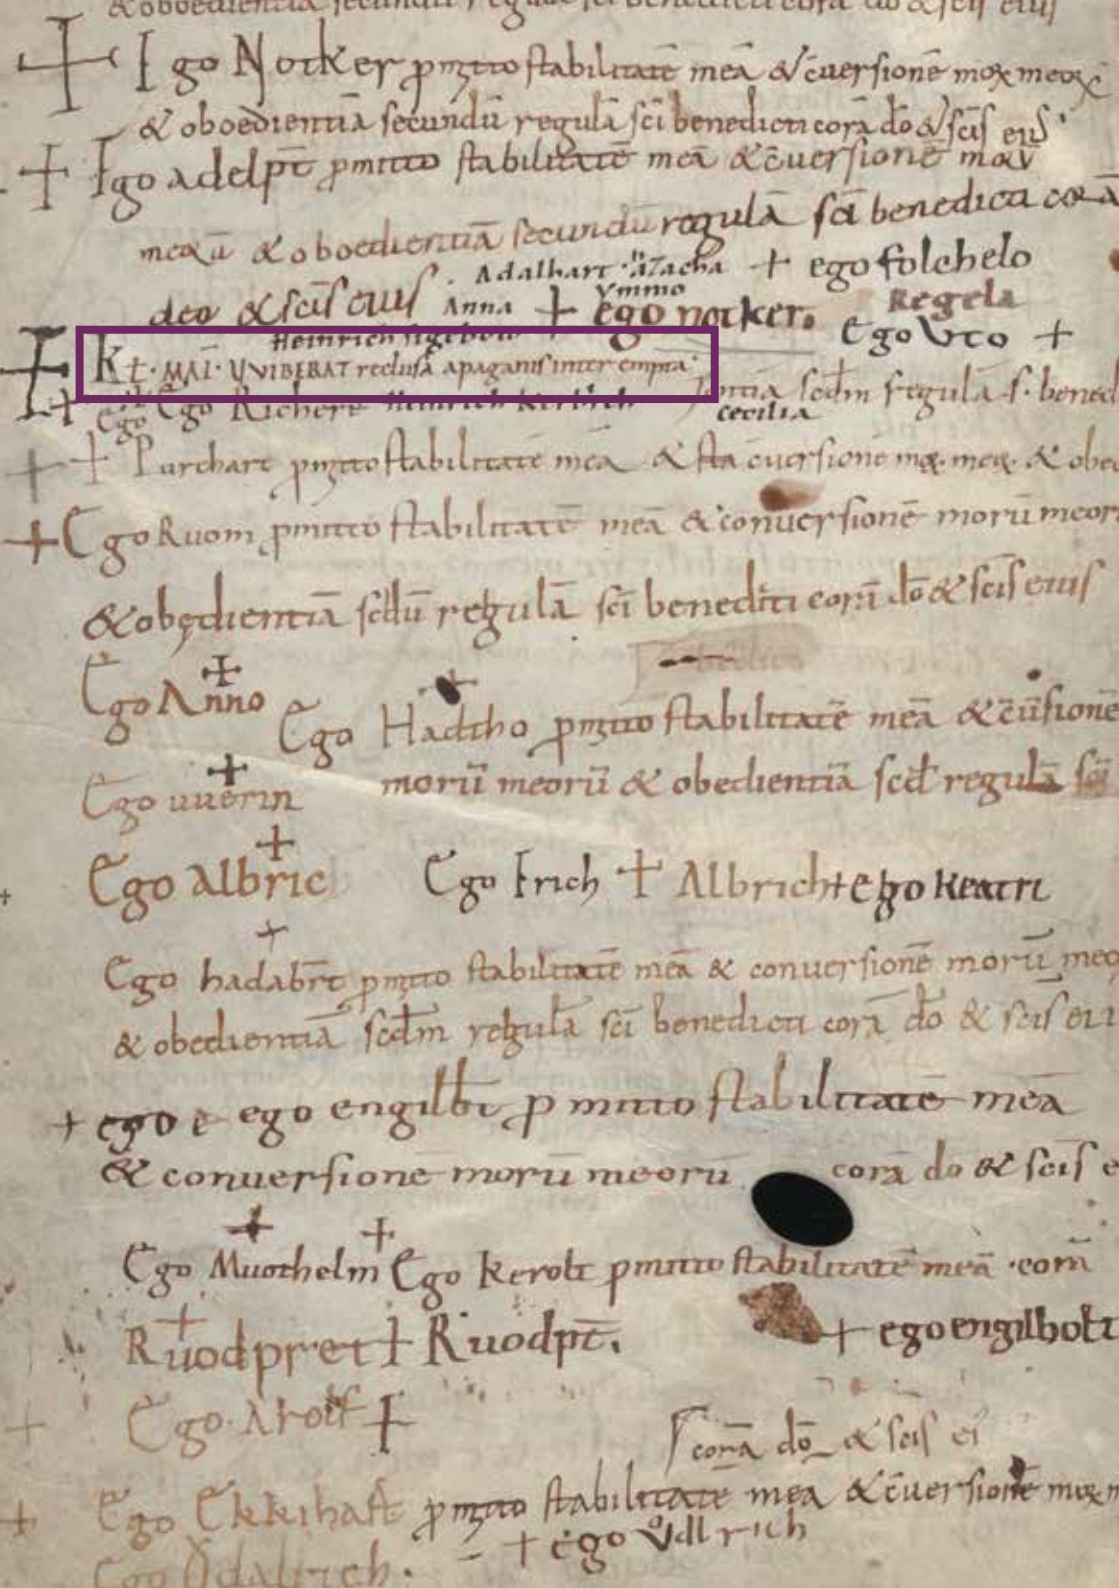 & oboedientiā secundū regulā sci benedicti corā dō & scis eius
Ego Notker pmitto stabilitatē meā & cūersionē moꝝ meoꝝ
& oboedientiā secundū regulā sci benedicti corā dō & scīs eiꝰ
Ego adelpt̄ pmitto stabilitatē meā & cūersionē
meoꝝ & oboedientiā secundū regulā sci benedicti corā
Adalhart Azacha + ego folchelo
deo & scīs eius Anna Ymmo + ego notker. Regela
Heinrich Ego Vto +
K MAI VVIBERAT reclusa a paganis interempta
+ Ego Richere Heinrich scdm regulā s. bened
cecilia
+ Purchart pmitto stabilitatē meā & cūersionē moꝝ meoꝝ & obe
+ Ego Ruom pmitto stabilitatē meā & conuersionē morū meor
& obędientiā scdū regulā sci benedicti corā dō & scis eius
Ego Anno
Ego Hadtho pmitto stabilitatē meā & cūsionē
Ego uuerin morū meorū & obedientiā scd regulā sci
Ego Albric Ego Erich + Albrich + ego Keatri
Ego hadabrt pmitto stabilitatē meā & conuersionē morū meo
& obedientiā scdm regulā sci benedicti corā dō & scis ei
+ ego e ego engilbt pmitto stabilitatē meā
& conuersionē morū meorū corā dō & scis e
Ego Muothelm Ego Kerolt pmitto stabilitatē meā corā
Ruodpret + Ruodpt. + ego engilbolt
Ego Arolf +
corā dō & scis ei
+ Ego Ekkihart pmitto stabilitatē meā & cūersionē
+ ego Vdlrich
Ego Odalrich.